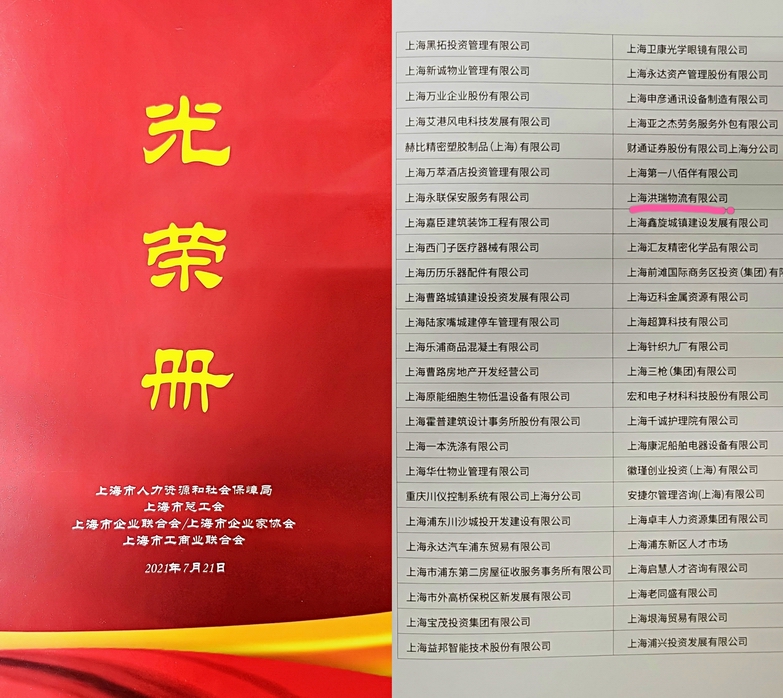 光
荣
册
上海市人力资源和社会保障局
上海市总工会
上海市企业联合会/上海市企业家协会
上海市工商业联合会
2021年7月21日
上海黑拓投资管理有限公司
上海新诚物业管理有限公司
上海万业企业股份有限公司
上海艾港风电科技发展有限公司
赫比精密塑胶制品(上海)有限公司
上海万萃酒店投资管理有限公司
上海永联保安服务有限公司
上海嘉臣建筑装饰工程有限公司
上海西门子医疗器械有限公司
上海历历乐器配件有限公司
上海曹路城镇建设投资发展有限公司
上海陆家嘴城建停车管理有限公司
上海乐浦商品混凝土有限公司
上海曹路房地产开发经营公司
上海原能细胞生物低温设备有限公司
上海霍普建筑设计事务所股份有限公司
上海一本洗涤有限公司
上海华仕物业管理有限公司
重庆川仪控制系统有限公司上海分公司
上海浦东川沙城投开发建设有限公司
上海永达汽车浦东贸易有限公司
上海市浦东第二房屋征收服务事务所有限公司
上海市外高桥保税区新发展有限公司
上海宝茂投资集团有限公司
上海益邦智能技术股份有限公司
上海卫康光学眼镜有限公司
上海永达资产管理股份有限公司
上海申彦通讯设备制造有限公司
上海亚之杰劳务服务外包有限公司
财通证券股份有限公司上海分公司
上海第一八佰伴有限公司
上海洪瑞物流有限公司
上海鑫旋城镇建设发展有限公司
上海汇友精密化学品有限公司
上海前滩国际商务区投资(集团)有限
上海迈科金属资源有限公司
上海超算科技有限公司
上海针织九厂有限公司
上海三枪(集团)有限公司
宏和电子材料科技股份有限公司
上海千诚护理院有限公司
上海康泥船舶电器设备有限公司
徽瑾创业投资(上海)有限公司
安捷尔管理咨询(上海)有限公司
上海卓丰人力资源集团有限公司
上海浦东新区人才市场
上海启慧人才咨询有限公司
上海老同盛有限公司
上海垠海贸易有限公司
上海浦兴投资发展有限公司